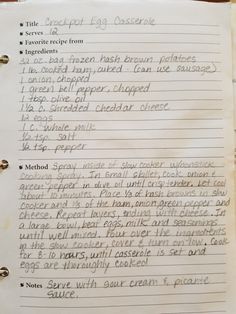 Title Crockpot Egg Casserole
Serves 12
Favorite recipe from
Ingredients
32 oz. bag frozen hash brown potatoes
1 lb. cooked ham, cubed (can use sausage)
1 onion, chopped
1 green bell pepper, chopped
1 tbsp olive oil
1 1/2 c. shredded cheddar cheese
12 eggs
1 c. whole milk
1/2 tsp. salt
1/2 tsp. pepper
Method Spray inside of slow cooker w/nonstick
cooking spray. In small skillet, cook onion &
green pepper in olive oil until crisp tender. Let cool
about 10 minutes. Place 1/3 of hash browns in slow
cooker and 1/3 of the ham, onion green pepper and
cheese. Repeat layers, ending with cheese. In
a large bowl, beat eggs, milk and seasonings
until well mixed. Pour over the ingredients
in the slow cooker, cover & turn on low. Cook
for 8-10 hours, until casserole is set and
eggs are thoroughly cooked!
Notes Serve with sour cream & picante
sauce.